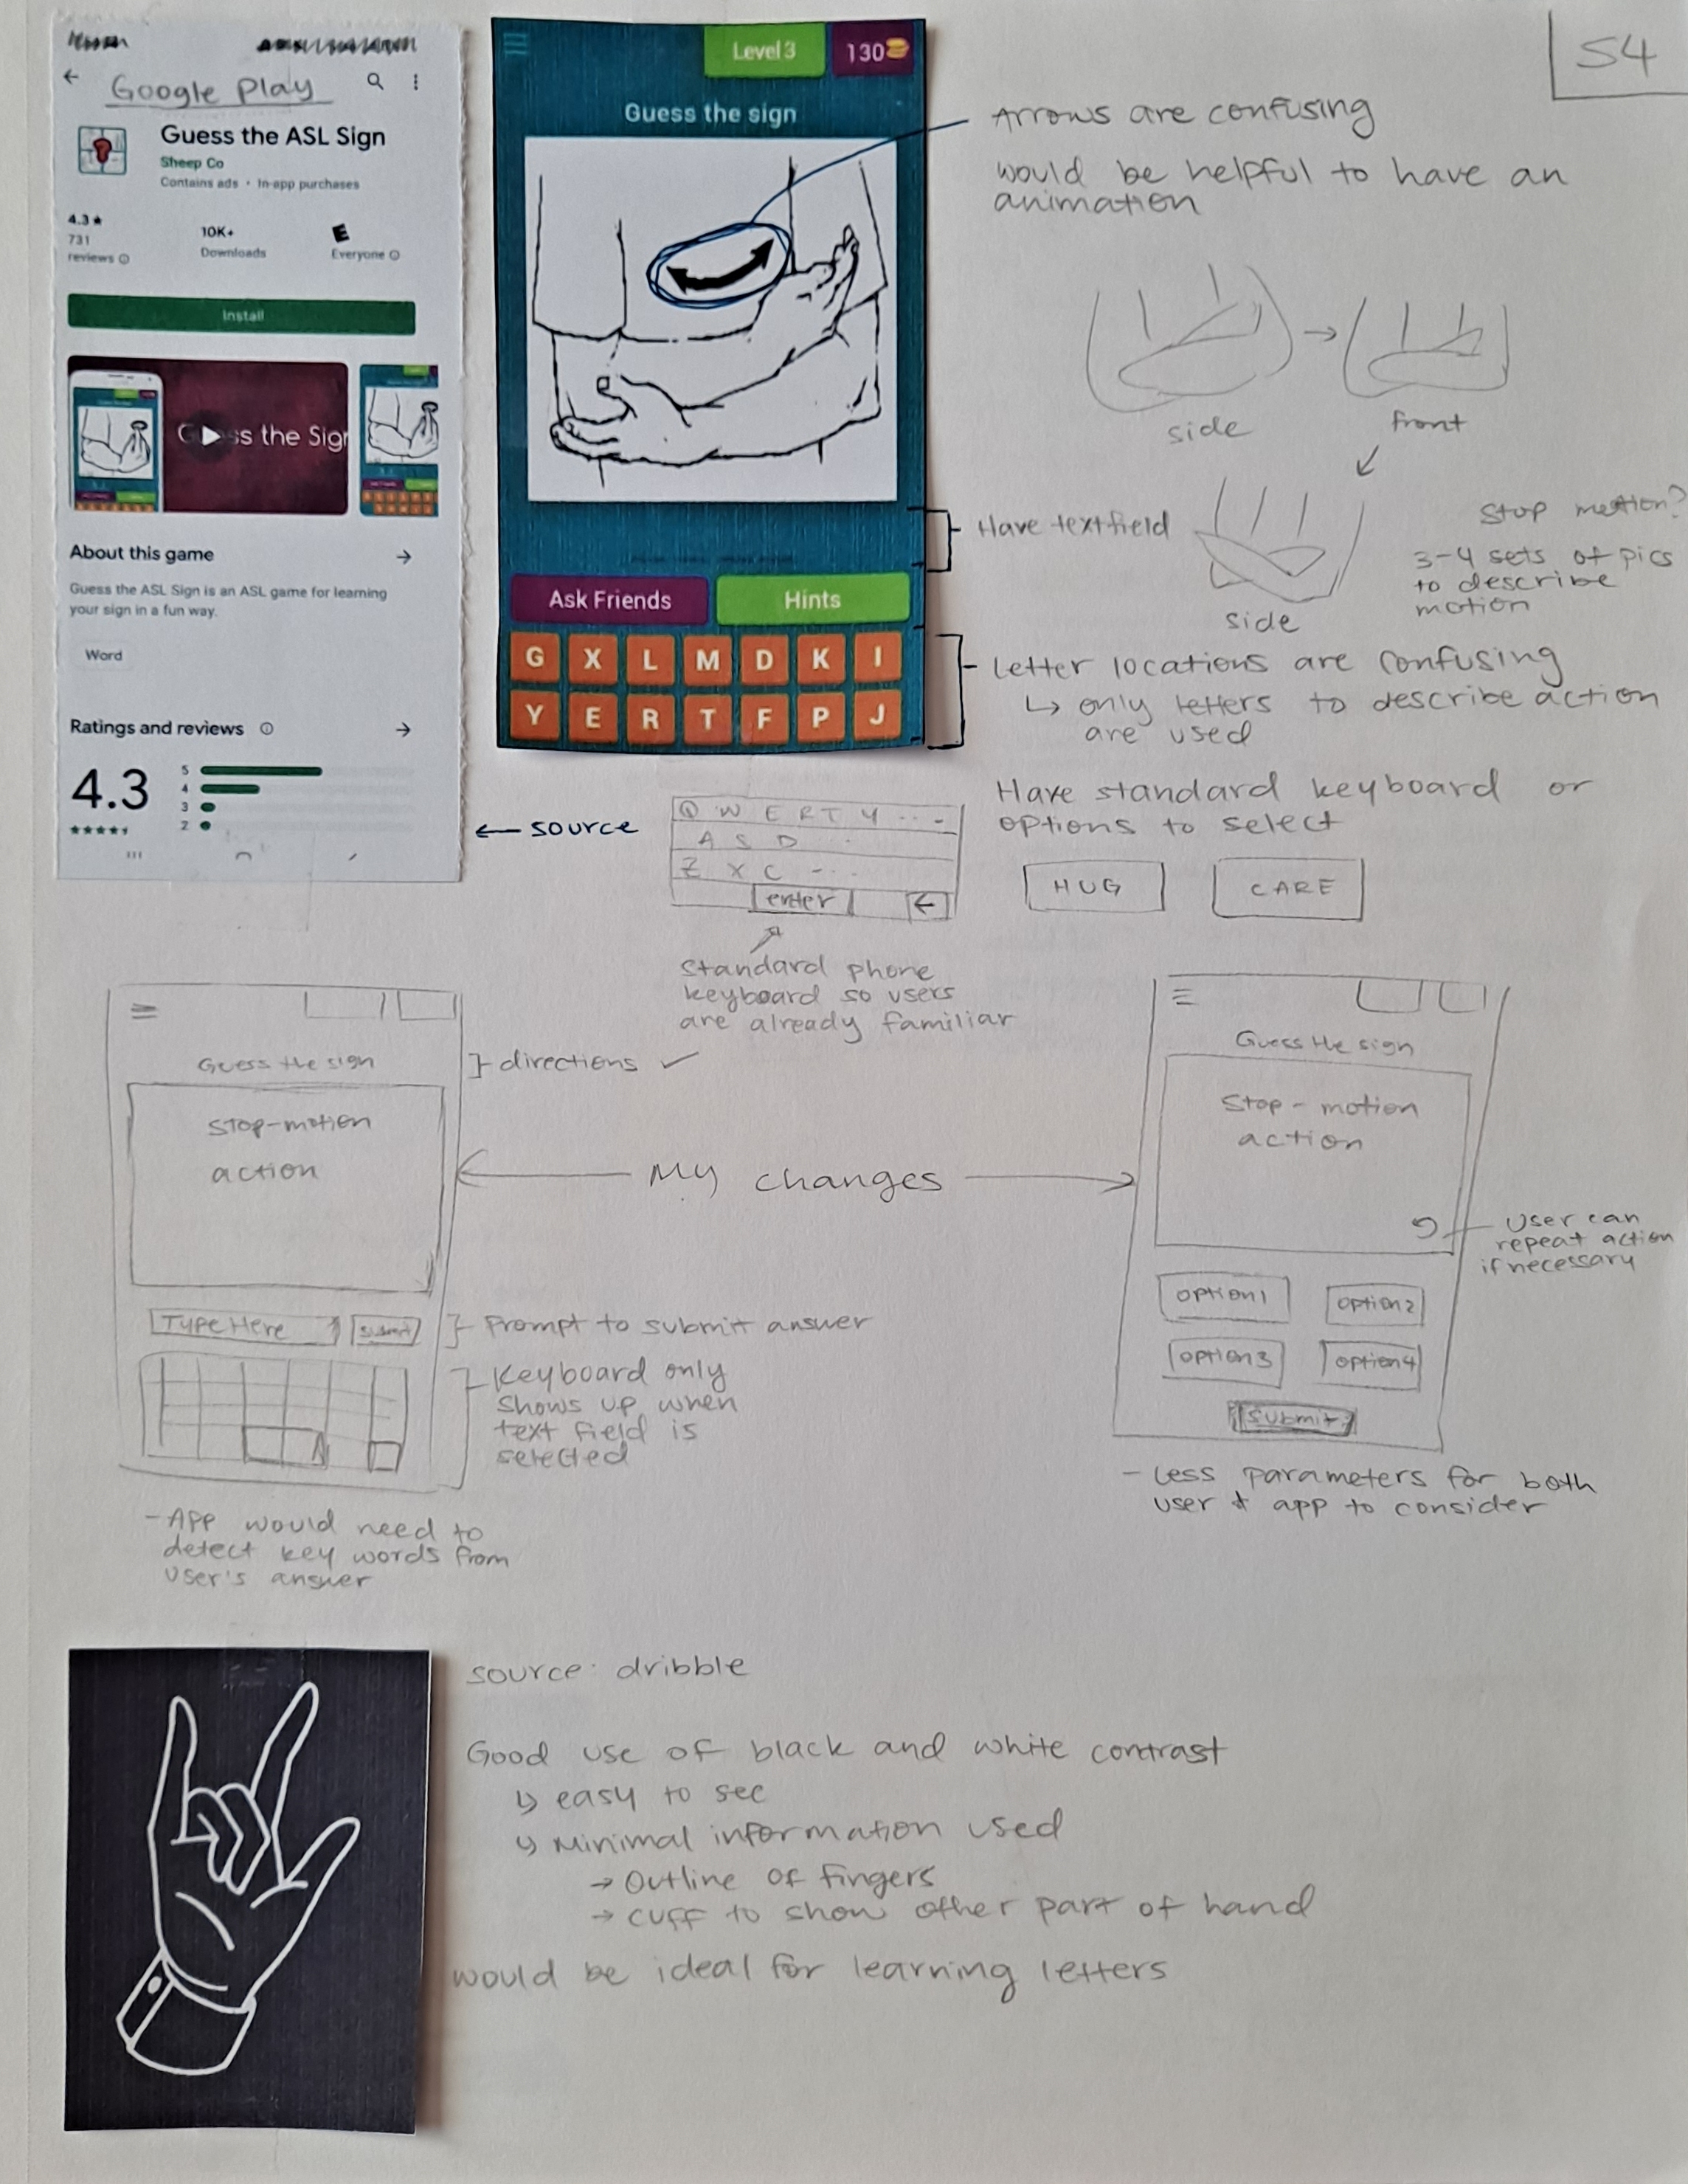 54
Google Play
Guess the ASL Sign
Sheep Co
Contains ads • In-app purchases
4.3★
731
reviews
10K+
Downloads
E
Everyone
Install
Guess the Sign
About this game
Guess the ASL Sign is an ASL game for learning
your sign in a fun way.
Word
Ratings and reviews
4.3
5
4
3
2
← source
Level 3
130
Guess the sign
Ask Friends
Hints
G X L M D K I
Y E R T F P J
Arrows are confusing
would be helpful to have an
animation
side
front
side
Stop motion?
3-4 sets of pics
to describe
motion
Have textfield
Letter locations are confusing
↳ only letters to describe action
are used
Have standard keyboard or
options to select
HUG
CARE
Q W E R T Y ...
A S D ..
Z X C ...
enter
←
Standard phone
keyboard so users
are already familiar
Guess the sign
directions ✓
Stop-motion
action
My changes
Type Here
Submit
Prompt to submit answer
Keyboard only
shows up when
text field is
selected
- App would need to
detect key words from
user's answer
Guess the sign
Stop-motion
action
User can
repeat action
if necessary
option1
option2
option3
option4
submit
- Less parameters for both
user & app to consider
source: dribble
Good use of black and white contrast
↳ easy to see
↳ Minimal information used
→ Outline of fingers
→ cuff to show other part of hand
would be ideal for learning letters